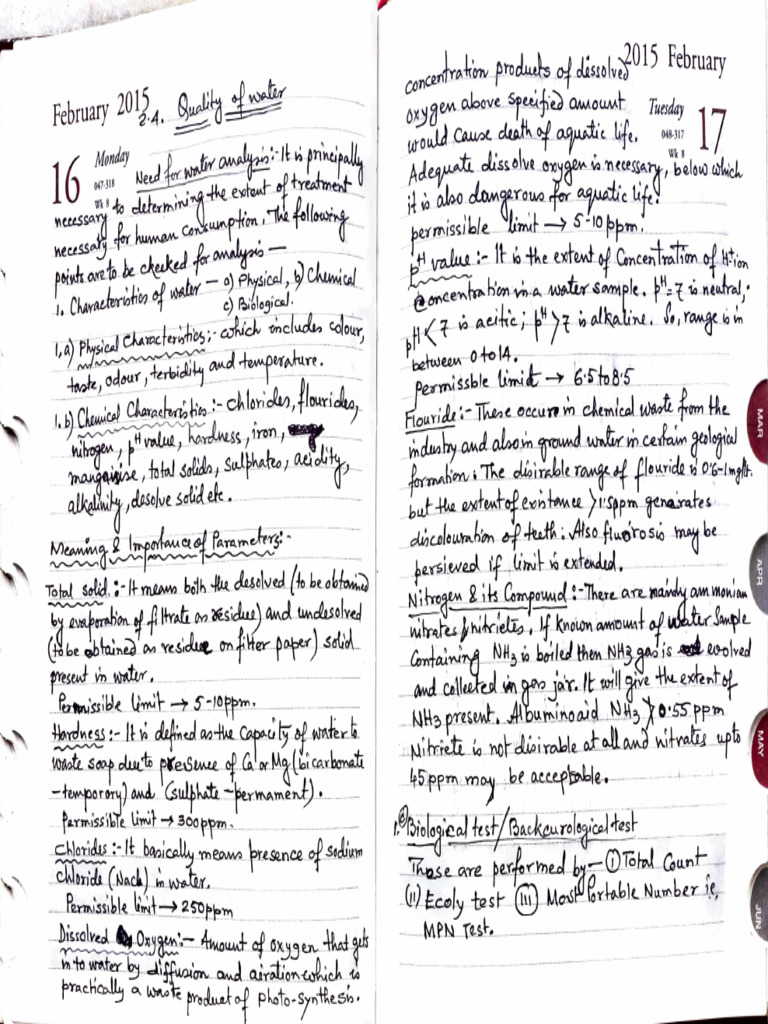 February 2015
2.4. Quality of water
16
Monday
047-318
Wk 8
Need for water analysis:- It is principally
necessary to determining the extent of treatment
necessary for human consumption. The following
points are to be checked for analysis —
1. Characteristics of water — a) Physical, b) Chemical
c) Biological.
1.a) Physical Characteristics:- which includes colour,
taste, odour, terbidity and temperature.
1.b) Chemical Characteristics:- chlorides, flourides,
nitrogen, pH value, hardness, iron,
manganise, total solids, sulphates, acidity,
alkalinity, desolve solid etc.
Meaning & Importance of Parameters:-
Total solid:- It means both the desolved (to be obtained
by evaporation of filtrate as residue) and undesolved
(to be obtained as residue on filter paper) solid
present in water.
Permissible Limit → 5-10ppm.
Hardness:- It is defined as the capacity of water to
waste soap due to presence of Ca or Mg (bicarbonate
-temporory) and (sulphate -permament).
Permissible limit → 300ppm.
Chlorides:- It basically means presence of sodium
chloride (Nacl) in water.
Permissible limit → 250ppm
Dissolved Oxygen:- Amount of oxygen that gets
in to water by diffusion and airation which is
practically a waste product of photo-synthesis.
2015 February
Tuesday
048-317
Wk 8
17
concentration products of dissolved
oxygen above specified amount
would cause death of aquatic life.
Adequate dissolve oxygen is necessary, below which
it is also dangerous for aquatic life.
permissible limit → 5-10ppm.
pH value:- It is the extent of Concentration of H+ion
concentration in a water sample. pH=7 is neutral;
pH<7 is acitic; pH>7 is alkaline. So, range is in
between 0 to 14.
Permissble limit → 6.5 to 8.5
Flouride:- These occure in chemical waste from the
industry and also in ground water in certain geological
formation. The disirable range of flouride is 0.6-1mg/lt.
but the extent of existance >1.5ppm generates
discolouration of teeth. Also fluorosis may be
persieved if limit is extended.
Nitrogen & its Compound:- There are mainly ammonian
nitrates/nitrietes. If known amount of water sample
Containing NH3 is boiled then NH3 gas is evolved
and collected in gas jar. It will give the extent of
NH3 present. Albuminoaid NH3 > 0.55 ppm
Nitriete is not disirable at all and nitrates upto
45ppm may be acceptable.
1.c) Biological test/Backcurological test
These are performed by — (i) Total Count
(ii) Ecoly test (iii) Most Portable Number ie,
MPN Test.
MAR
APR
MAY
JUN